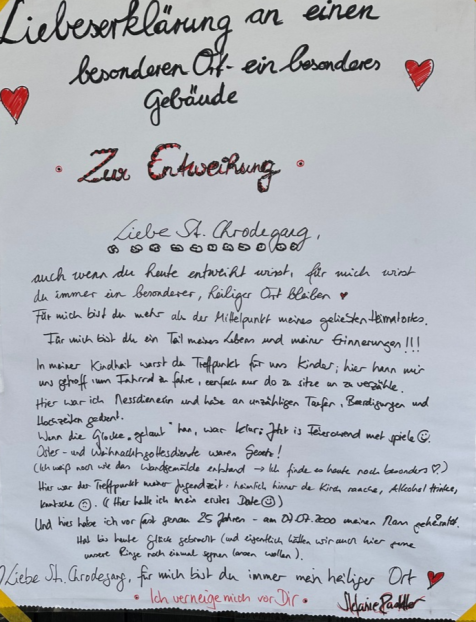 Liebeserklärung an einen
besonderen Ort - ein besonderes
Gebäude
Zur Entweihung
Liebe St. Chrodegang,
auch wenn du heute entweiht wirst, für mich wirst
du immer ein besonderer, heiliger Ort bleiben ♥
Für mich bist du mehr als der Mittelpunkt meines geliebten Heimatortes.
Für mich bist du ein Teil meines Lebens und meiner Erinnerungen!!!
In meiner Kindheit warst du Treffpunkt für uns Kinder; hier hann mir
uns getroff zum Fahrrad ze fahre, einfach nur do ze sitze an ze verzähle.
Hier war ich Messdienerin und habe an unzähligen Taufen, Beerdigungen und
Hochzeiten gedient.
Wenn die Glocke "gelaut" han, war klar: Jetzt is Feierowend met spiele ☺.
Oster- und Weihnachtsgottesdienste waren Gesetz!
(Ich weiß noch wie das Wandgemälde entstand → Ich finde es heute noch besonders ♡)
Hier war der Treffpunkt meiner Jugendzeit, heimlich hinner de Kirch rauche, Alkohol trinke,
(Hier hatte ich mein erstes Date ☺)
Und hier habe ich vor fast genau 25 Jahren - am 07.07.2000 meinen Mann geheiratet.
Hat bis heute Glück gebracht (und eigentlich hätten wir auch hier gerne
unsere Ringe noch einmal segnen lassen wollen).
Liebe St. Chrodegang, für mich bist du immer mein heiliger Ort ♥
• Ich verneige mich vor Dir •